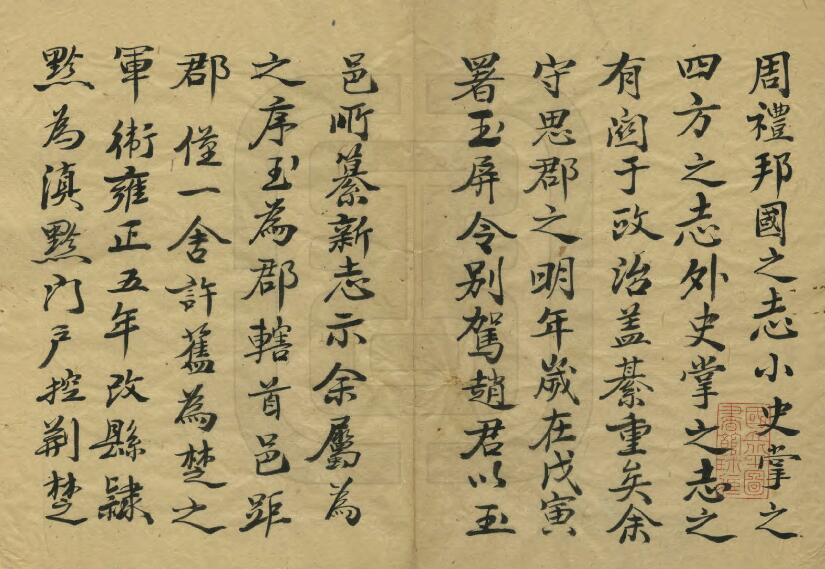 周禮邦國之志小史掌之
四方之志外史掌之志之
有関于政治盖綦重矣余
守思郡之明年嵗在戊寅
署玉屏令别駕趙君以玉
邑所纂新志示余屬為
之序玉為郡轄首邑距
郡僅一舍許舊為楚之
軍衛雍正五年改縣隷
黔為滇黔門户控荆楚